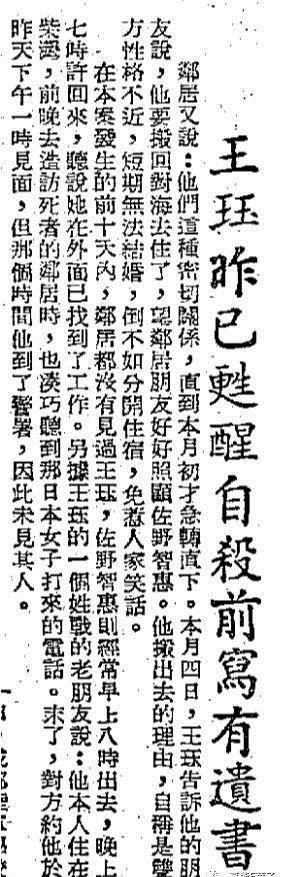 王珏昨已甦醒自殺前寫有遺書
鄰居又說：他們這種密切關係，直到本月初才急轉直下。本月四日，王珏告訴他的朋
友說，他要搬回對海去住了，望鄰居朋友好好照顧佐野智惠。他搬出去的理由，自稱是雙
方性格不近，短期無法結婚，倒不如分開住宿，免惹人家笑話。
在本案發生的前十天內，鄰居都沒有見過王珏，佐野智惠則經常早上八時出去，晚上
七時許回來，聽說她在外面已找到了工作。另據王珏的一個姓戰的老朋友說：他本人住在
柴灣，前晚去造訪死者的鄰居時，也湊巧聽到那日本女子打來的電話。末了，對方約他於
昨天下午一時見面，但那個時間他到了警署，因此未見其人。